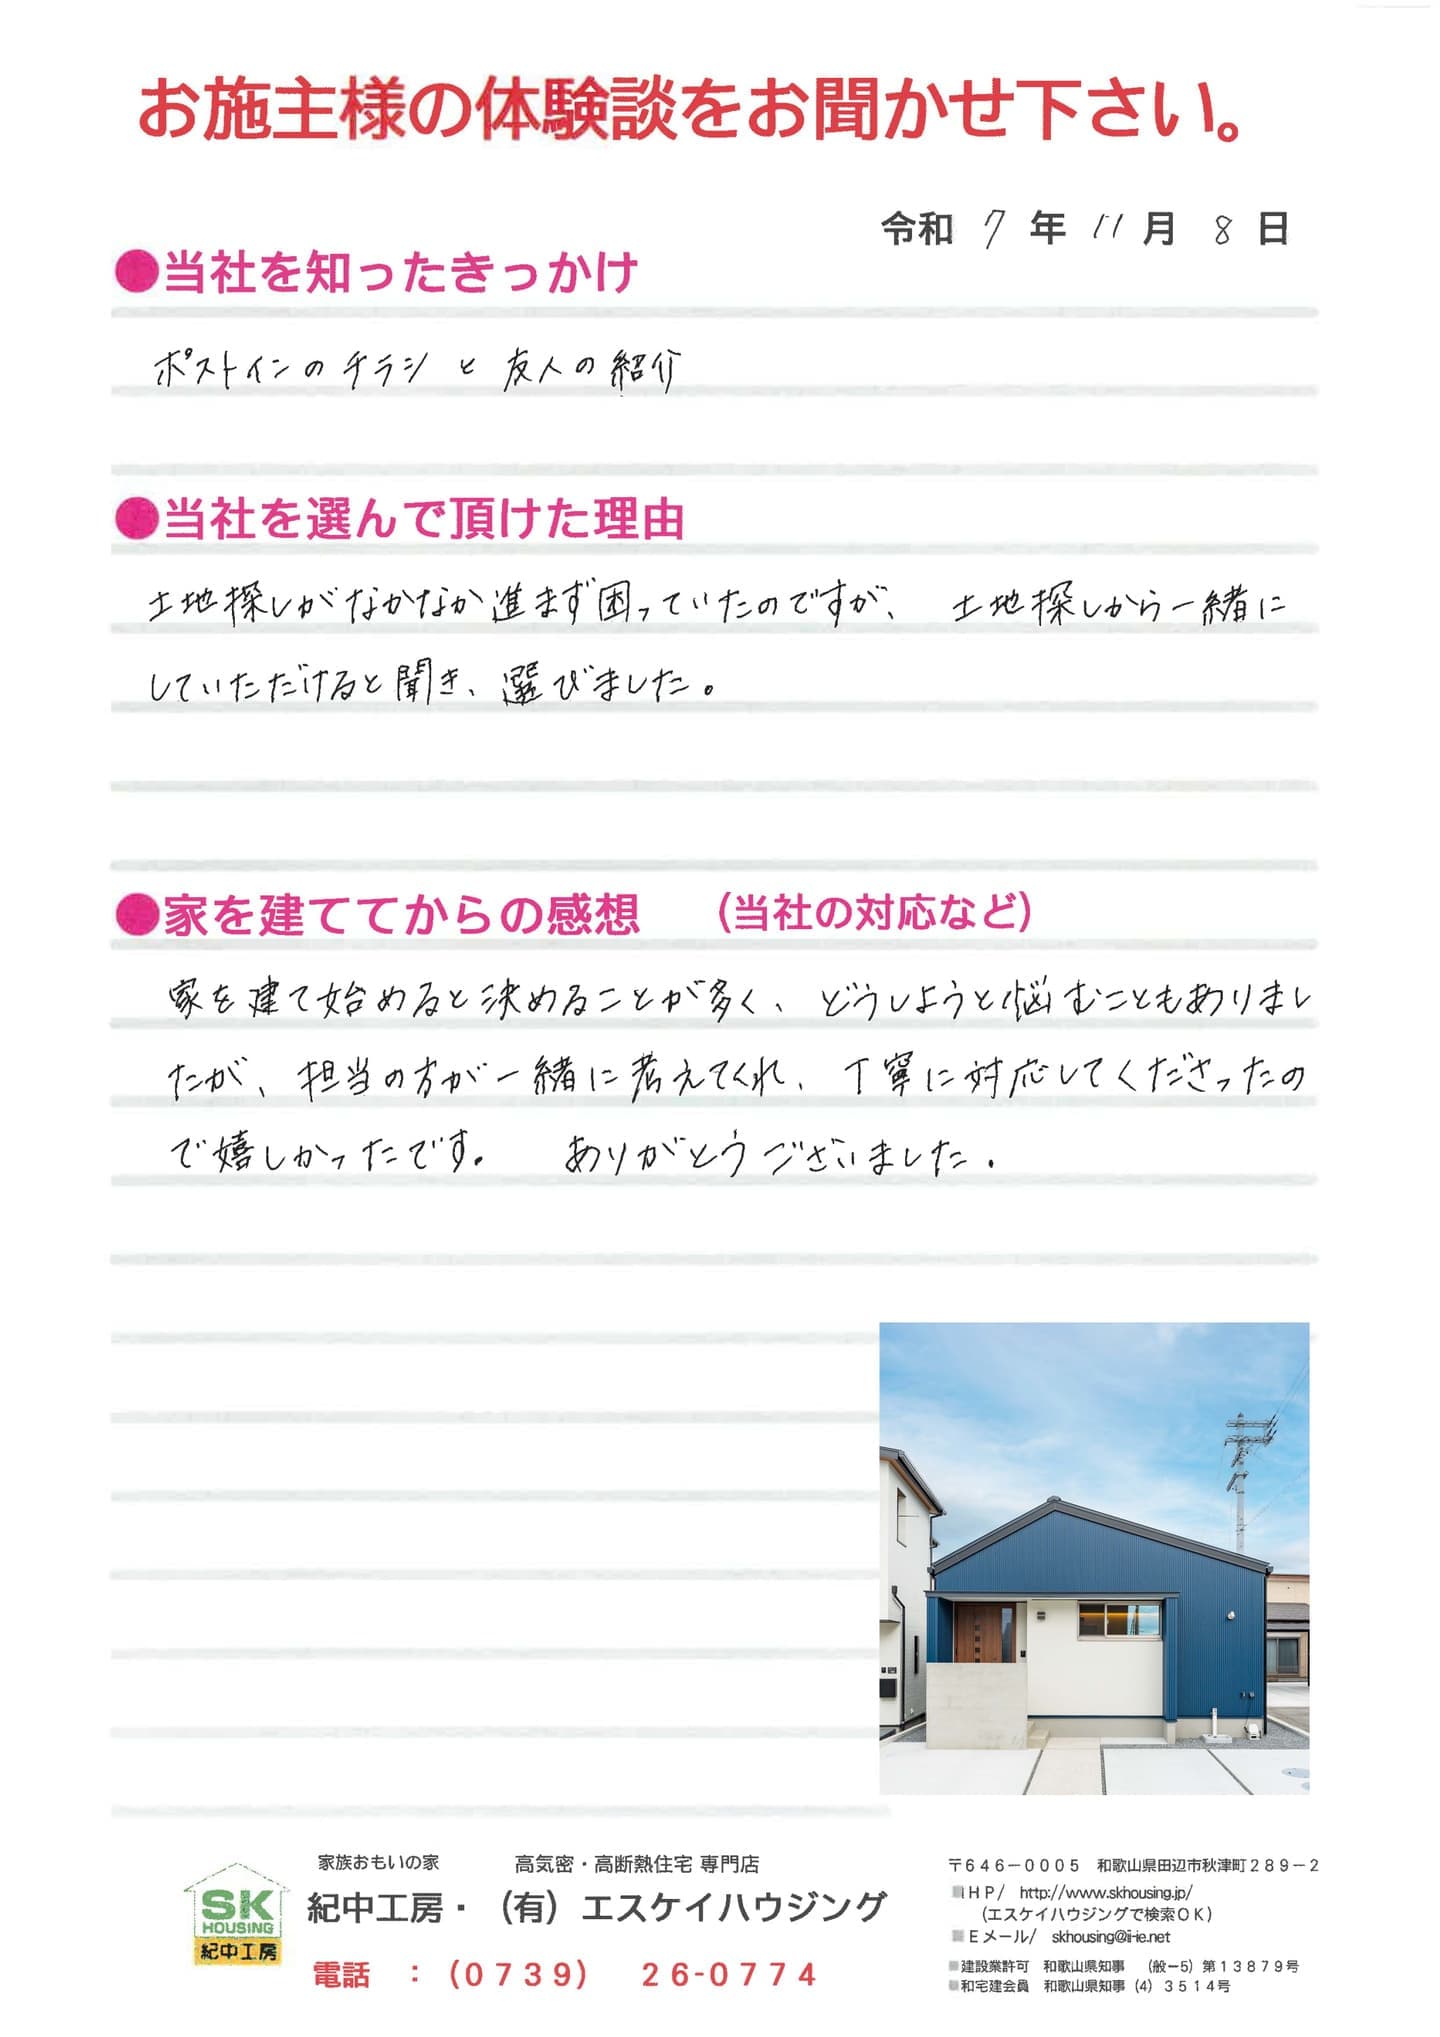 お施主様の体験談をお聞かせ下さい。
令和 7 年 11 月 8 日
●当社を知ったきっかけ
ポストインのチラシと友人の紹介
●当社を選んで頂けた理由
土地探しがなかなか進まず困っていたのですが、 土地探しから一緒に
していただけると聞き、選びました。
●家を建ててからの感想 （当社の対応など）
家を建て始めると決めることが多く、どうしようと悩むこともありまし
たが、担当の方が一緒に考えてくれ、丁寧に対応してくださったの
で嬉しかったです。 ありがとうございました.
SK
HOUSING
紀中工房
家族おもいの家 高気密・高断熱住宅 専門店
紀中工房・（有）エスケイハウジング
電話 ：（0739） 26-0774
〒646－0005 和歌山県田辺市秋津町289－2
■HP/ http://www.skhousing.jp/
（エスケイハウジングで検索OK）
■Eメール/ skhousing@ii-ie.net
■建設業許可 和歌山県知事 （般－5）第13879号
■和宅建会員 和歌山県知事（4）3514号